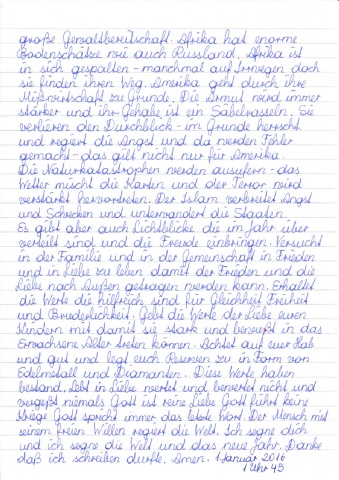 große Gewaltbereitschaft. Afrika hat enorme
Bodenschätze wie auch Russland. Afrika ist
in sich gespalten – manchmal auf Irrwegen doch
sie finden ihren Weg. Amerika geht durch ihre
Mißwirtschaft zu Grunde. Die Armut wird immer
stärker und ihr Gehabe ist ein Säbelrasseln. Sie
verlieren den Durchblick – im Grunde herrscht
und regiert die Angst und da werden Fehler
gemacht – das gilt nicht nur für Amerika.
Die Naturkatastrophen werden ausufern – das
Wetter mischt die Karten und der Terror wird
verstärkt hervortreten. Der Islam verbreitet Angst
und Schrecken und unterwandert die Staaten.
Es gibt aber auch Lichtblicke die im Jahr über
verteilt sind und die Freude einbringen. Versucht
in der Familie und in der Gemeinschaft in Frieden
und in Liebe zu leben damit der Frieden und die
Liebe nach Außen getragen werden kann. Erhaltet
die Werte die hilfreich sind für Gleichheit Freiheit
und Brüderlichkeit. Gebt die Werte der Liebe euren
Kindern mit damit sie stark und bewußt in das
Erwachsene Alter treten können. Achtet auf euer Hab
und gut und legt euch Reserven zu in Form von
Edelmetall und Diamanten. Diese Werte haben
bestand. Lebt in Liebe wertet und bewertet nicht und
vergeßt niemals Gott ist reine Liebe Gott führt keine
Kriege Gott spricht immer das letzte Wort. Der Mensch mit
seinem freien Willen regiert die Welt. Ich segne dich
und ich segne die Welt und das neue Jahr. Danke
daß ich schreiben durfte. Amen. 1. Januar 2016
1 Uhr 45